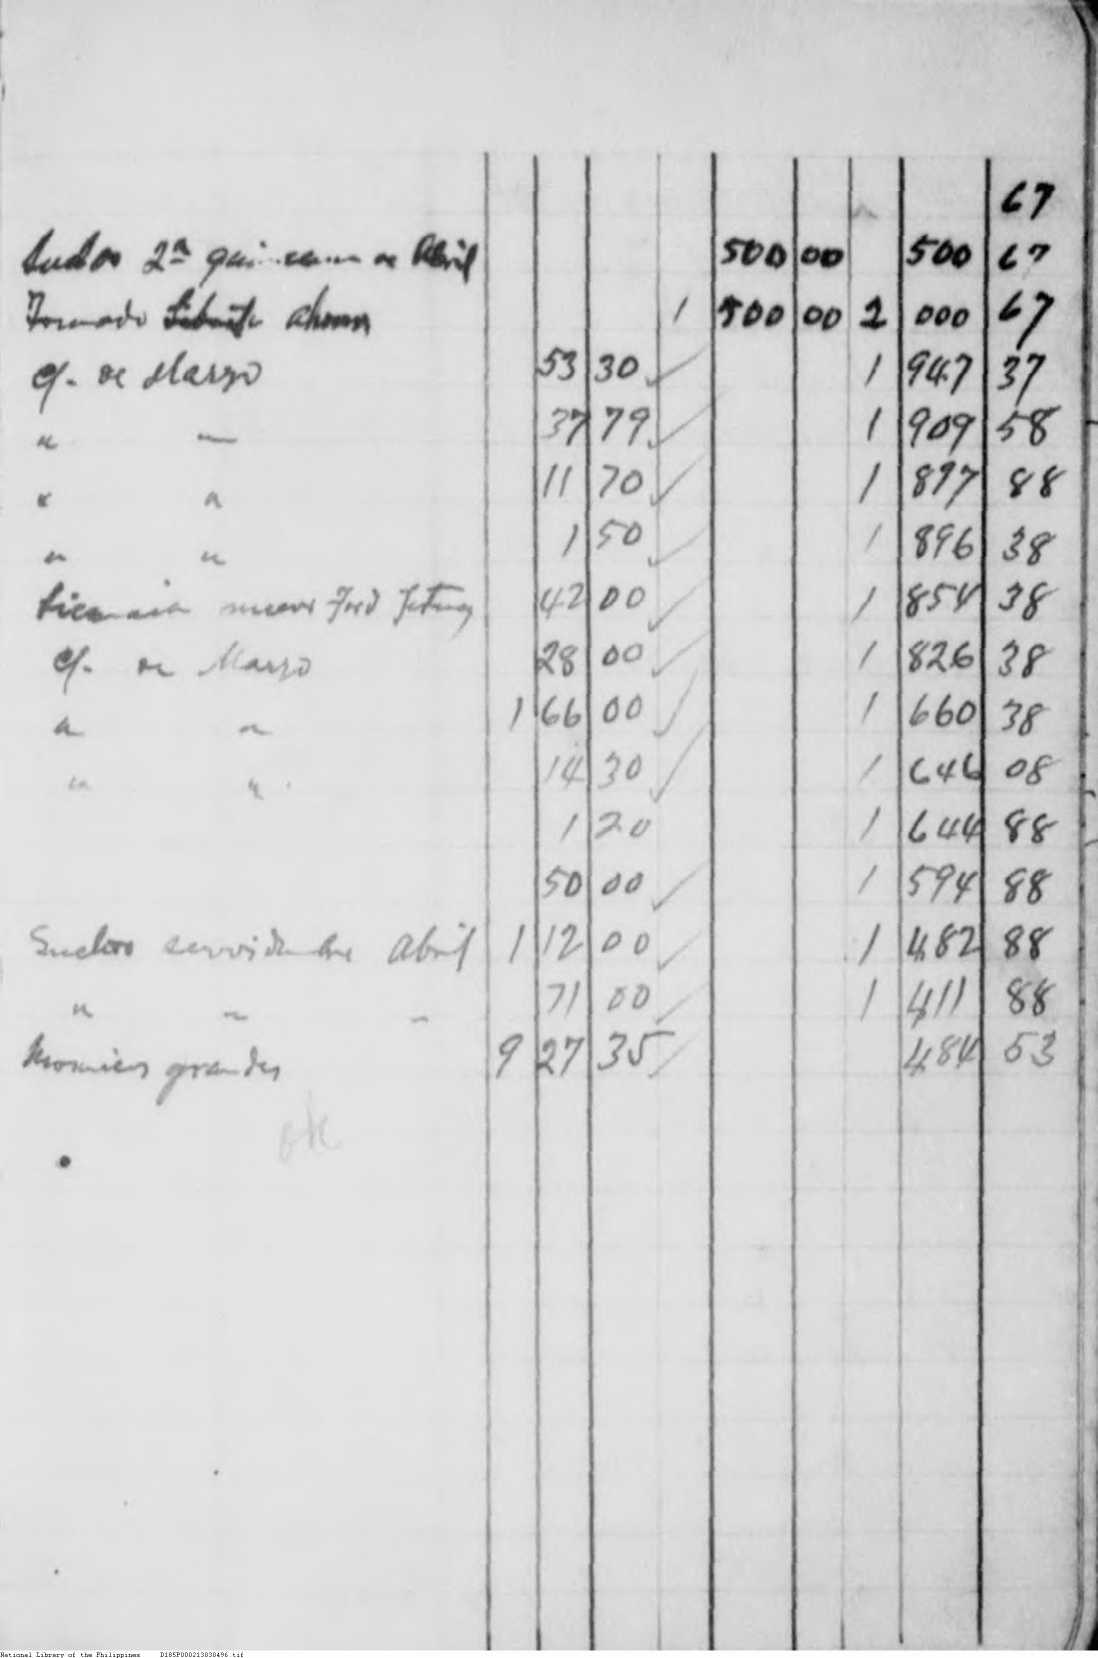 67
Sueldo 2ª quincena de Abril 500 00 500 67
Tomado Libreta ahorros 1 500 00 2 000 67
C/. de Marzo 53 30 ✓ 1 947 37
" " 37 79 ✓ 1 909 58
" " 11 70 ✓ 1 897 88
" " 1 50 ✓ 1 896 38
Licencia nuevo Ford 42 00 ✓ 1 854 38
C/. de Marzo 28 00 ✓ 1 826 38
" " 1 66 00 ✓ 1 660 38
" " 14 30 ✓ 1 646 08
1 20 1 644 88
50 00 ✓ 1 594 88
Sueldos servidumbre Abril 1 12 00 ✓ 1 482 88
" " " 71 00 ✓ 1 411 88
grandes 9 27 35 ✓ 484 53
ok
National Library of the Philippines D185P000213030496.tif